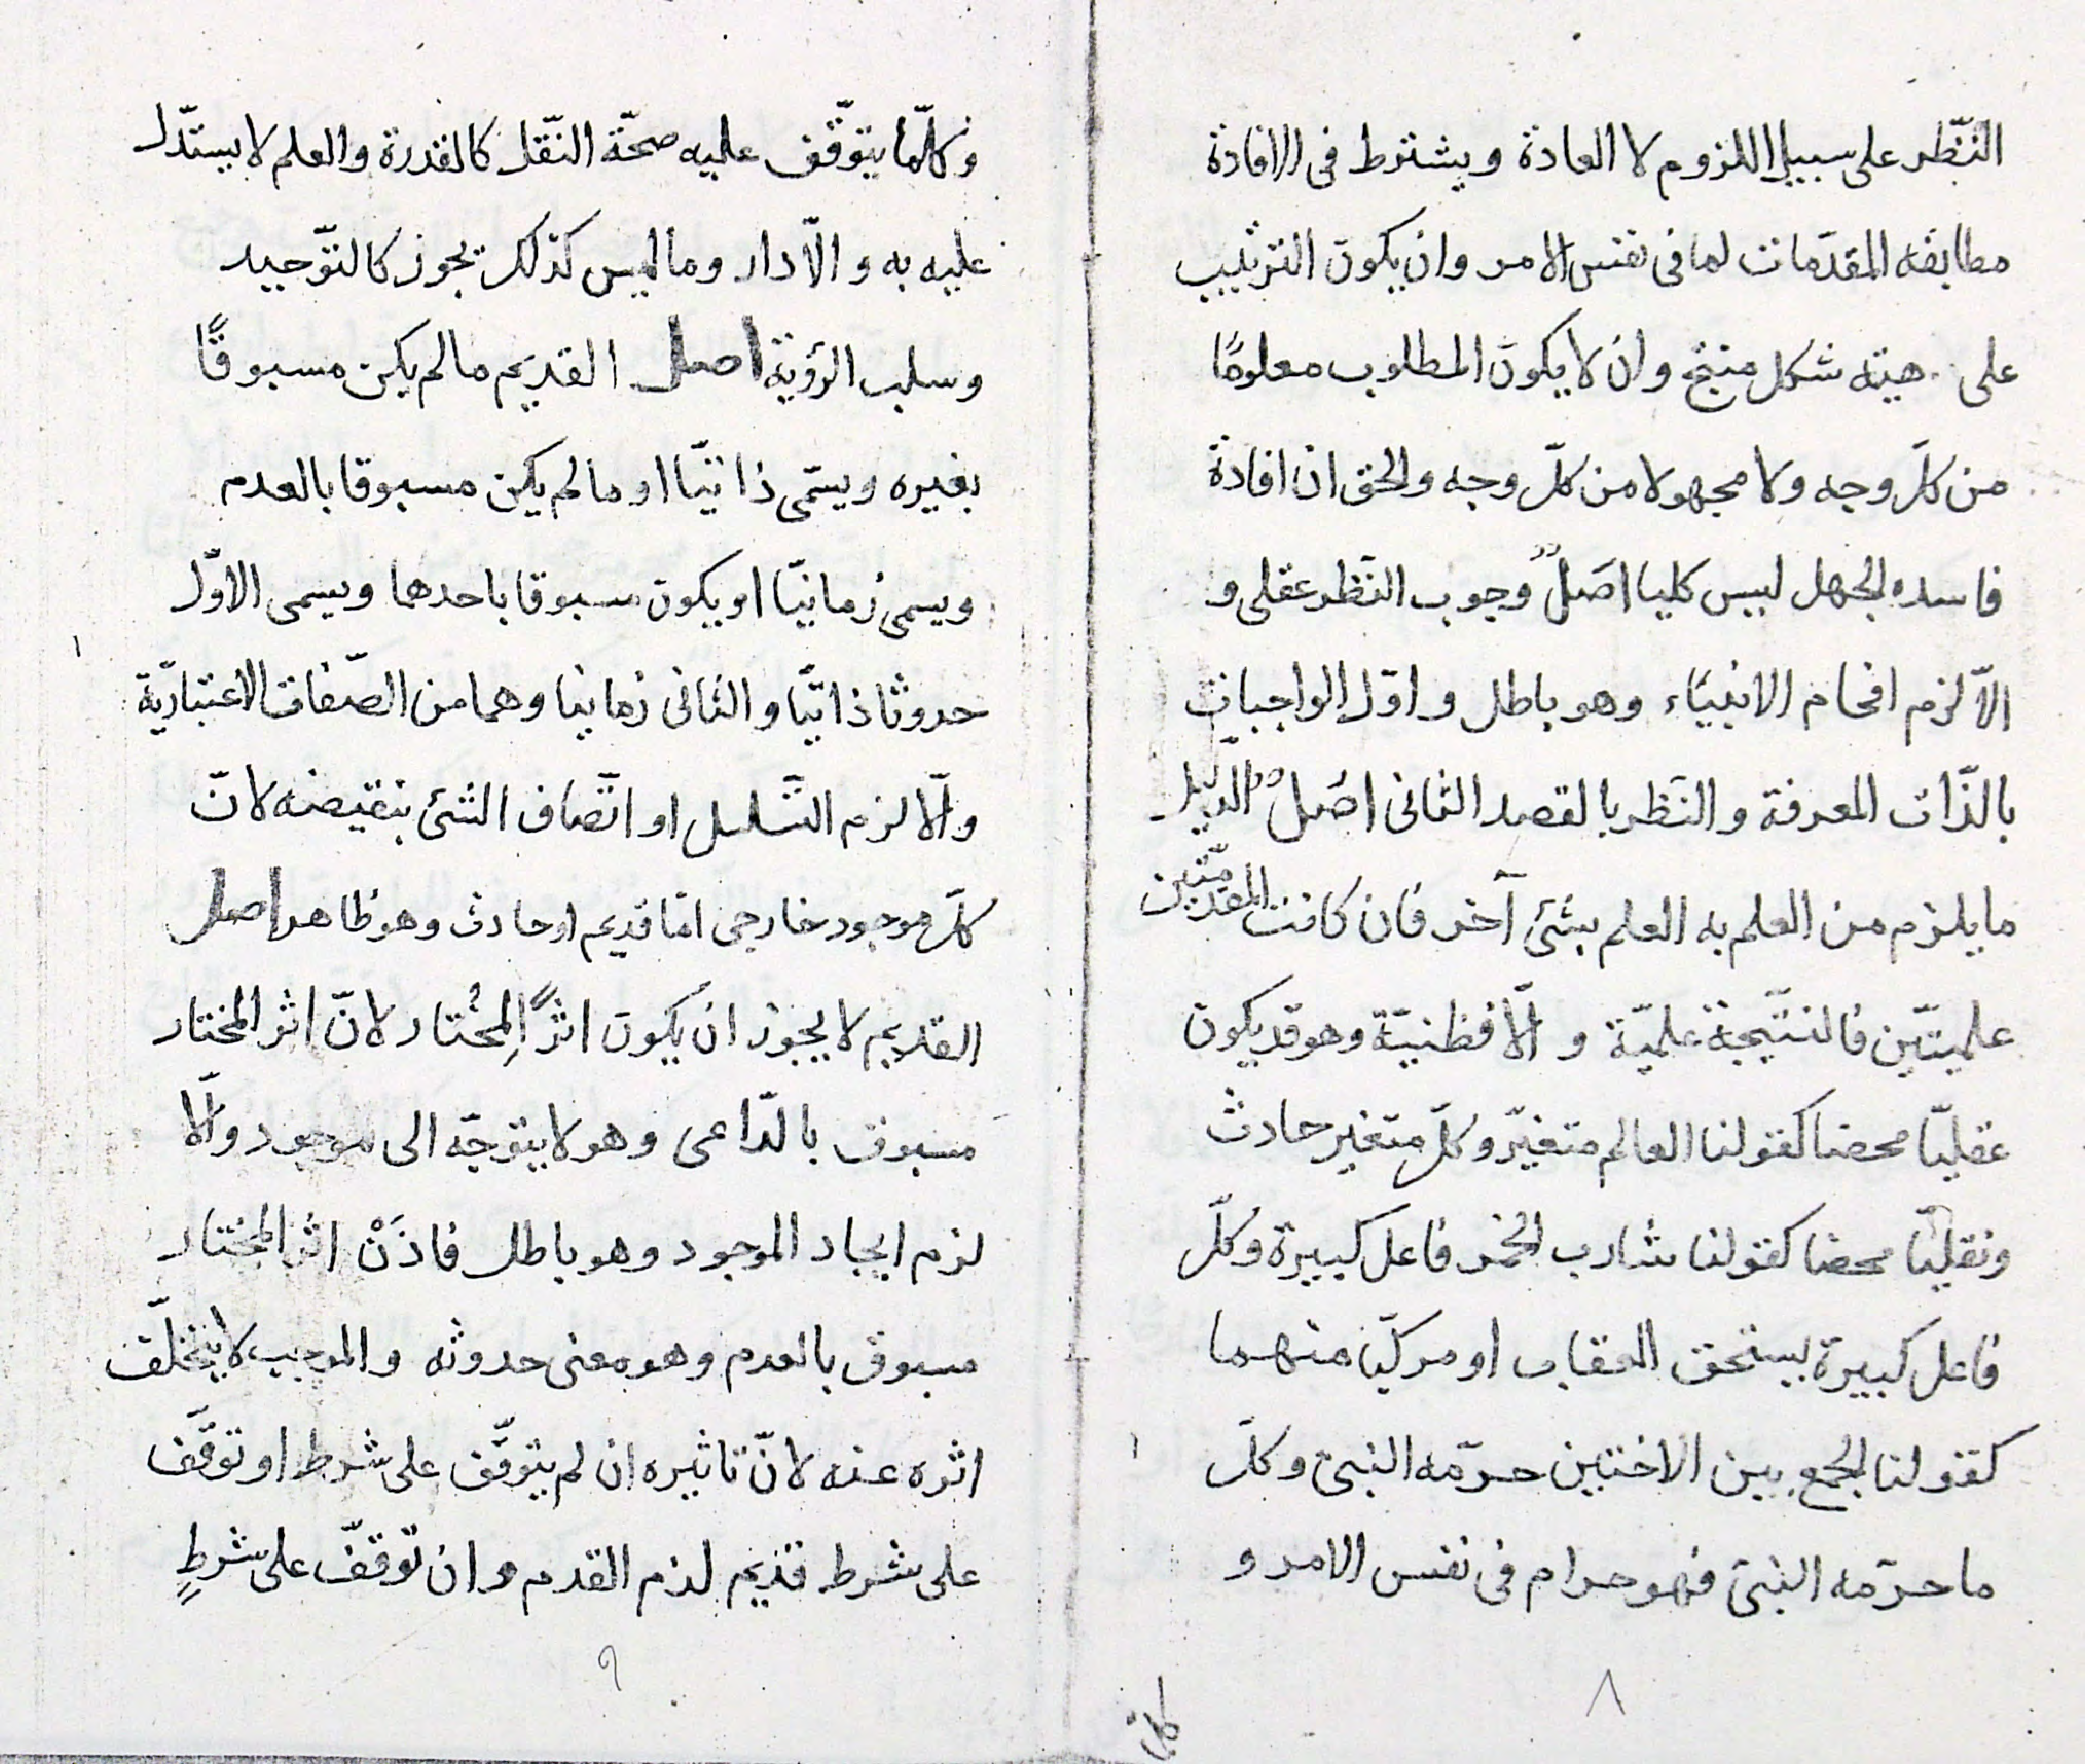 النّظر على سبيل اللزوم لا العادة ويشترط فى الافادة
مطابقه المقدّمات لما فى نفس الامر وان يكون الترتيب
على هيئه شكل منتج وان لا يكون المطلوب معلومًا
من كلّ وجه ولا مجهولا من كلّ وجه والحق ان افادة
فاسده الجهل ليس كليا اصل وجوب النّظر عقلى و
الاّ لزم افحام الانبيّاء وهو باطل واوّل الواجبات
بالذّات المعرفة والنّظر بالقصد الثانى اصل الدّليل
ما يلزم من العلم به العلم بشئ آخر فان كانت المقدّمتين
علميتّين فالنتّيجة علميّة و الّا فظنيّة وهو قد يكون
عقليّا محضا كقولنا العالم متغيّر وكلّ متغير حادث
ونقليّا محضا كقولنا شارب الخمر فاعل كبيرة وكلّ
فاعل كبيرة يستحق العقاب او مركبّا منهما
كقولنا الجمع بين الاختين حرّمه النبىّ وكلّ
ما حرّمه النبىّ فهو حرام فى نفس الامر و
٨
كلمّا
وكلّما يتوقّف عليه صحّة النّقل كالقدرة والعلم لا يستدّل
عليه به و الّا دار وما ليس كذلك يجوز كالتوّحيد
وسلب الرؤية اصل القديم ما لم يكن مسبوقًا
بغيره ويسمّى ذاتيّا او ما لم يكن مسبوقا بالعدم
ويسمى زمانيّا او يكون مسبوقا باحدهما ويسمى الاوّل
حدوثا ذاتيّا والثانى زمانيا وهما من الصّفات الاعتباريّة
والّا لزم التّسلسل او اتّصاف الشئ بنقيضه لانّ
كلّ موجود خارجى امّا قديم او حادث وهو ظاهر اصل
القديم لا يجوز ان يكون اثرًا لِمُختار لانّ اثر المختار
مسبوق بالدّاعى وهو لا يتوجّه الى موجود والّا
لزم ايجاد الموجود وهو باطل فاذَنْ اثر المختار
مسبوق بالعدم وهو معنى حدوثه والموجب لا يتخلّف
اثره عنه لانّ تاثيره ان لم يتوقّف على شرط او توقّف
على شرط قديم لزم القدم وان توقّف على شرطٍ
٩